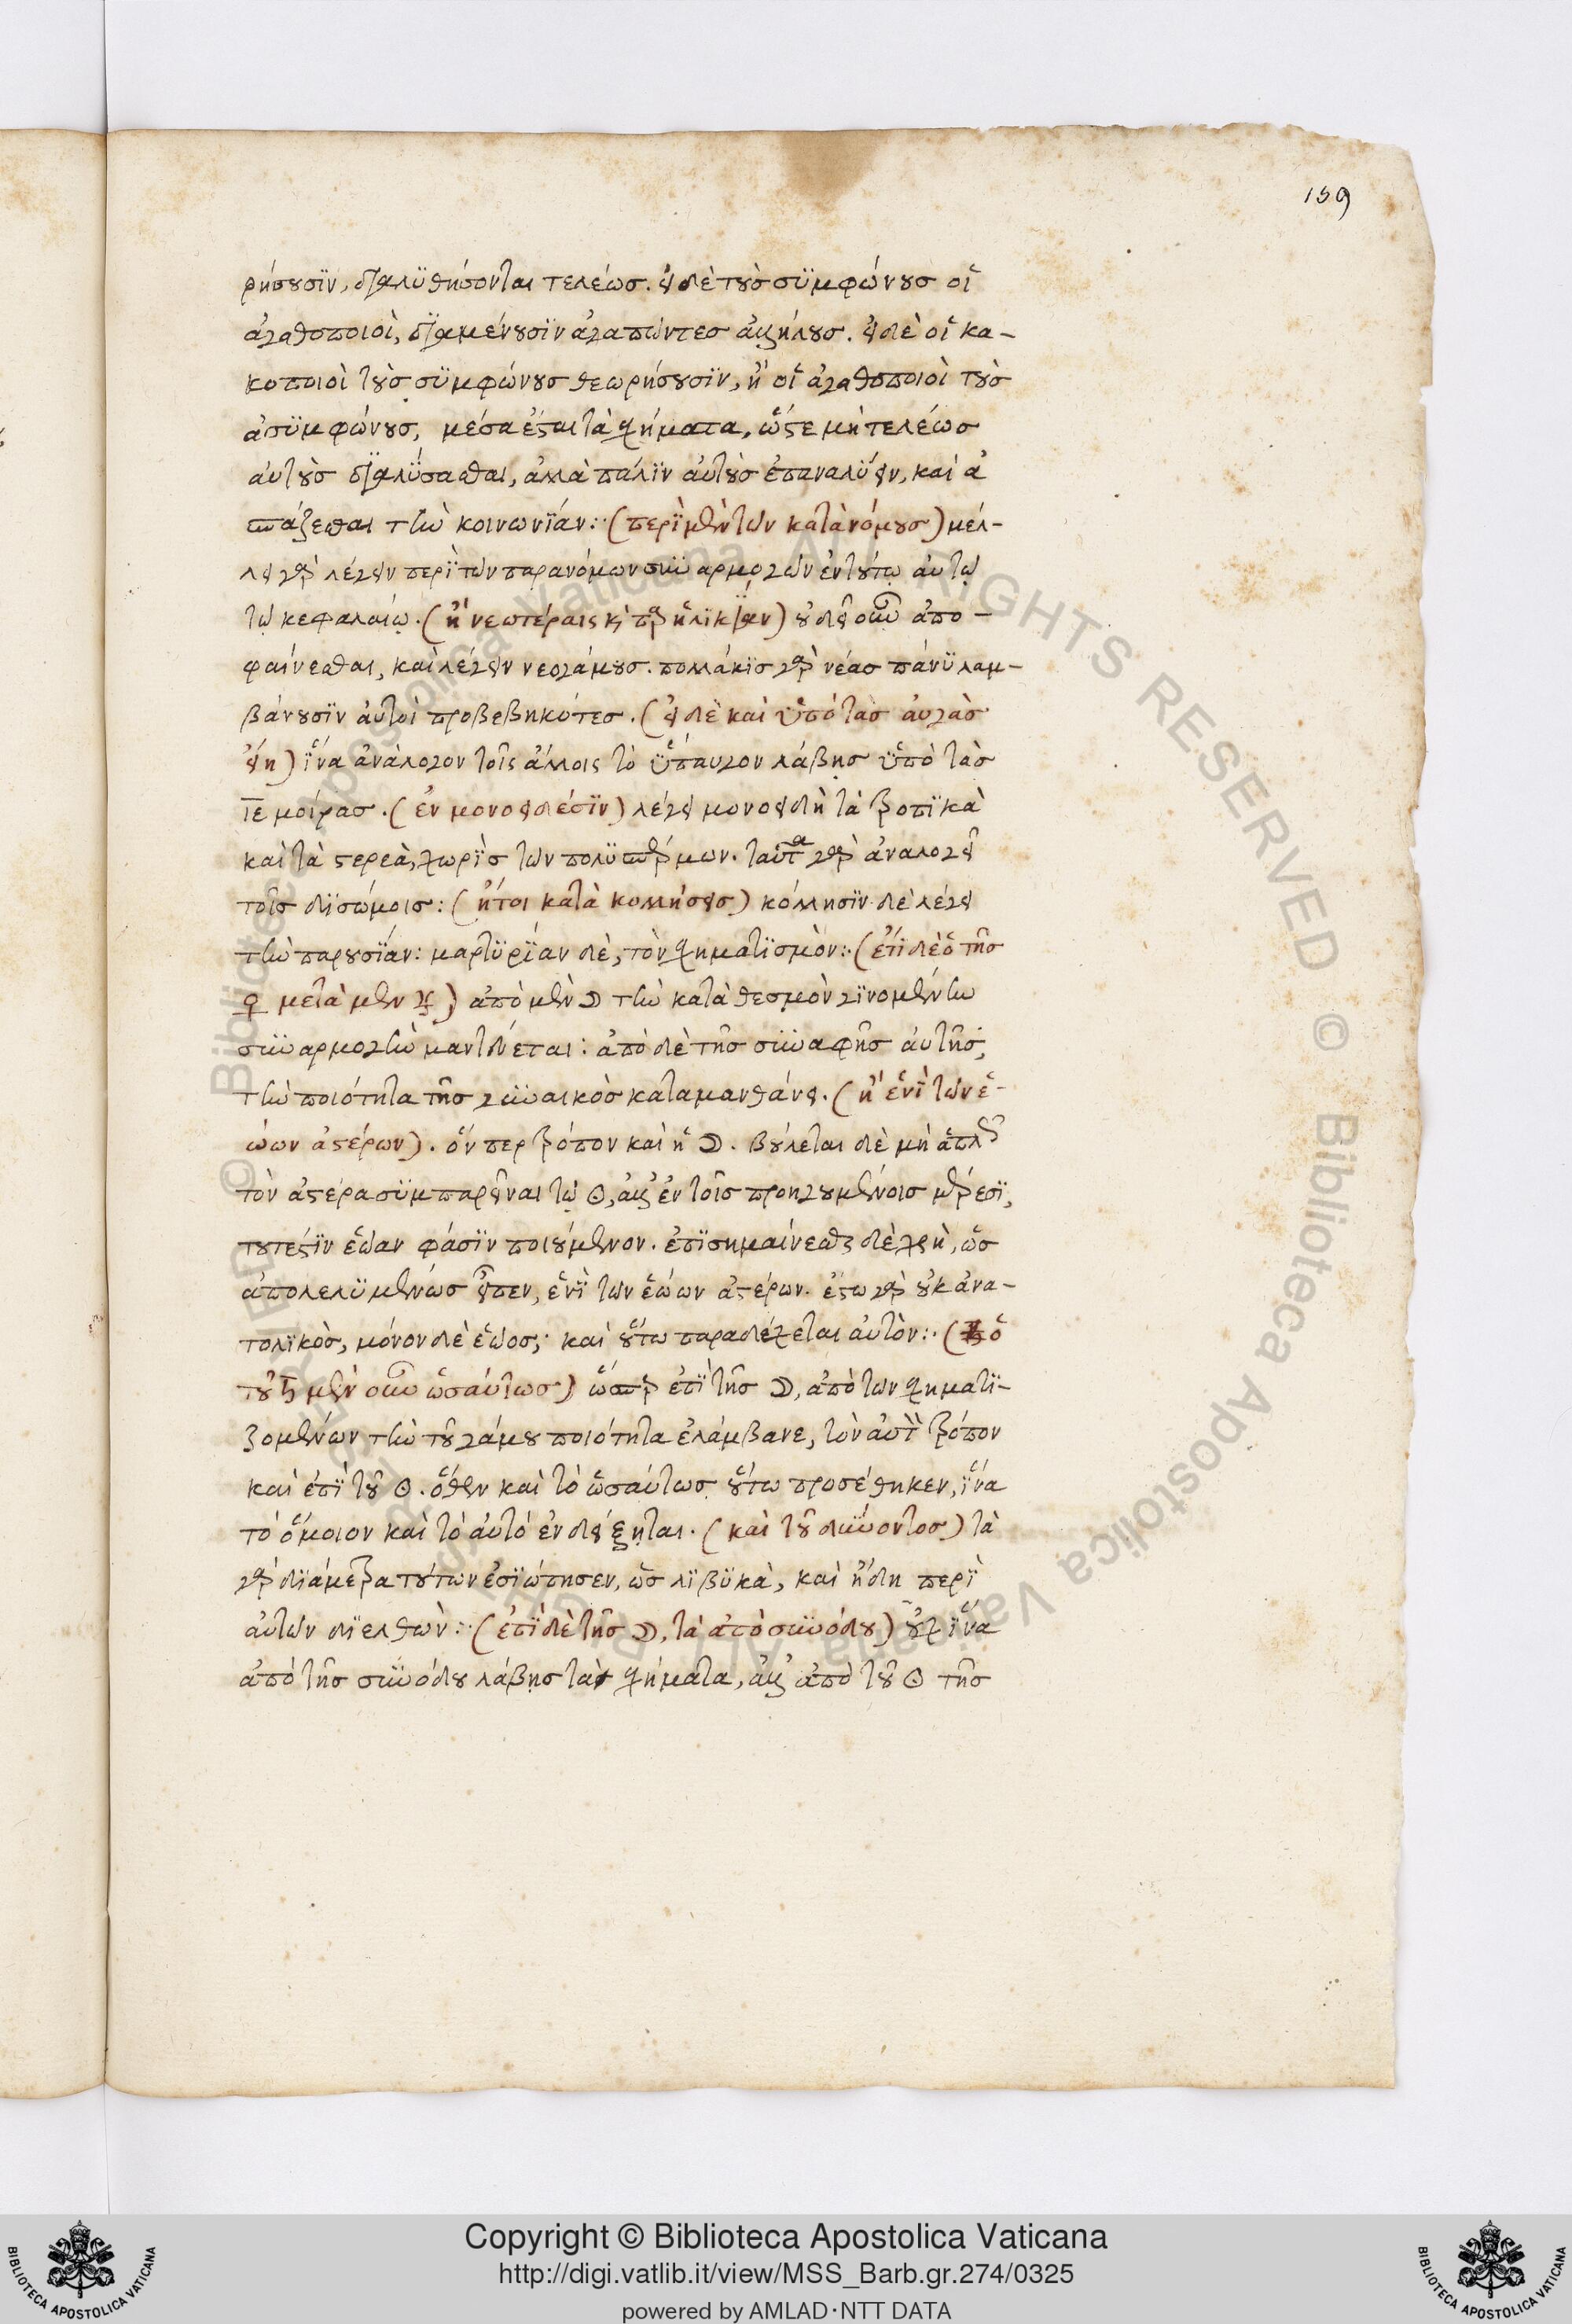 159
ρήσουσϊν, δϊαλϋθήσονται τελέωσ. εἰ δὲ τοὺσ συμφώνουσ οἱ
ἀγαθοποιοὶ, δϊαμένουσϊν ἀγαπῶντεσ ἀλλήλουσ. εἰ δὲ οἱ κα-
κοποιοὶ τοὺσ συμφώνουσ θεωρήσουσϊν, ἢ οἱ ἀγαθοποιοὶ τοὺσ
ἀσυμφώνουσ, μέσα ἔσται τὰ σχήματα, ὥστε μὴ τελέωσ
αὐτοὺσ δϊαλύσασθαι, ἀλλὰ πάλϊν αὐτοὺσ ἐπαναλύειν, καὶ ἀ
σπάζεσθαι τὴν κοινωνϊάν: (περὶ μὲν τῶν κατὰ νόμουσ) μέλ-
λει γὰρ λέγειν περὶ τῶν παρανόμων συναρμογῶν ἐν τούτῳ αὐτῷ
τῷ κεφαλαίῳ. (ἢ νεωτέραις κ παρ ἡλικίαν) οὐ δεῖ οὖν ἀπο-
φαίνεσθαι, καὶ λέγειν νεογάμουσ. πολλάκϊσ γὰρ νέασ πάνϋ λαμ-
βάνουσϊν αὐτοὶ προβεβηκότεσ. (εἰ δὲ καὶ ὑπὸ τὰσ αὐγὰσ
εἴη) ἵνα ἀνάλογον τοῖς ἄλλοις τὸ ὕπαυγον λάβῃσ ὑπὸ τὰσ
ιε μοίρασ. (ἐν μονοειδέσϊν) λέγει μονοειδῆ τὰ τροπϊκὰ
καὶ τὰ στερεὰ, χωρὶσ τῶν πολϋσπέρμων. ταῦτα γὰρ ἀναλογεῖ
τοῖσ δϊσώμοισ: (ἤτοι κατὰ κολλήσεισ) κόλλησϊν δὲ λέγει
τὴν παρουσϊάν: μαρτϋρϊάν δὲ, τὸν σχηματϊσμὸν: (ἔτι δὲ ὁ τῆσ
♀ μετὰ μὲν ♃) ἀπὸ μὲν ☽ τὴν κατὰ θεσμὸν γϊνομένην
συναρμογὴν μαντεύεται: ἀπὸ δὲ τῆσ συναφῆσ αὐτῆσ,
τὴν ποιότητα τῆσ γυναικὸσ καταμανθάνει. (ἢ ἑνὶ τῶν ἑ-
ώων ἀστέρων). ὅν περ τρόπον καὶ ἡ ☽. βούλεται δὲ μὴ ἁπλῶσ
τὸν ἀστέρα συμπαρεῖναι τῷ ☉, ἀλλ ἐν τοῖσ προηγουμένοισ μέρεσϊ,
τουτέστϊν ἑῴαν φάσϊν ποιούμενον. ἐπϊσημαίνεσθαι δὲ χρὴ, ὡσ
ἀπολελϋμένωσ εἶπεν, ἑνὶ τῶν ἑῴων ἀστέρων. ἔστω γὰρ οὐκ ἀνα-
τολϊκὸσ, μόνον δὲ ἑῷοσ, καὶ οὕτω παραδέχεται αὐτὸν: (ὁ
τοῦ ♄ μὲν οὖν ὡσαύτωσ) ὥσπερ ἐπὶ τῆσ ☽, ἀπὸ τῶν σχηματϊ-
ζομένων τὴν τοῦ γάμου ποιότητα ἐλάμβανε, τὸν αὐτὸν τρόπον
καὶ ἐπὶ τοῦ ☉. ὅθεν καὶ τὸ ὡσαύτωσ οὕτω προσέθηκεν, ἵνα
τὸ ὅμοιον καὶ τὸ αὐτὸ ἐνδείξηται. (καὶ τοῦ δύνοντοσ) τὰ
γὰρ δϊάμετρα τούτων ἐσϊώπησεν, ὡσ λϊβϋκὰ, καὶ ἤδη περὶ
αὐτῶν δϊελθὼν: (ἐπὶ δὲ τῆσ ☽, τὰ ἀπὸ συνόδου) οὐχ ἵνα
ἀπὸ τῆσ συνόδου λάβῃσ τὰ σχήματα, ἀλλ ἀπὸ τοῦ ☉ τῆσ
© Biblioteca Apostolica Vaticana ALL RIGHTS RESERVED
Copyright © Biblioteca Apostolica Vaticana
http://digi.vatlib.it/view/MSS_Barb.gr.274/0325
powered by AMLAD·NTT DATA
BIBLIOTECA APOSTOLICA VATICANA
BIBLIOTECA APOSTOLICA VATICANA